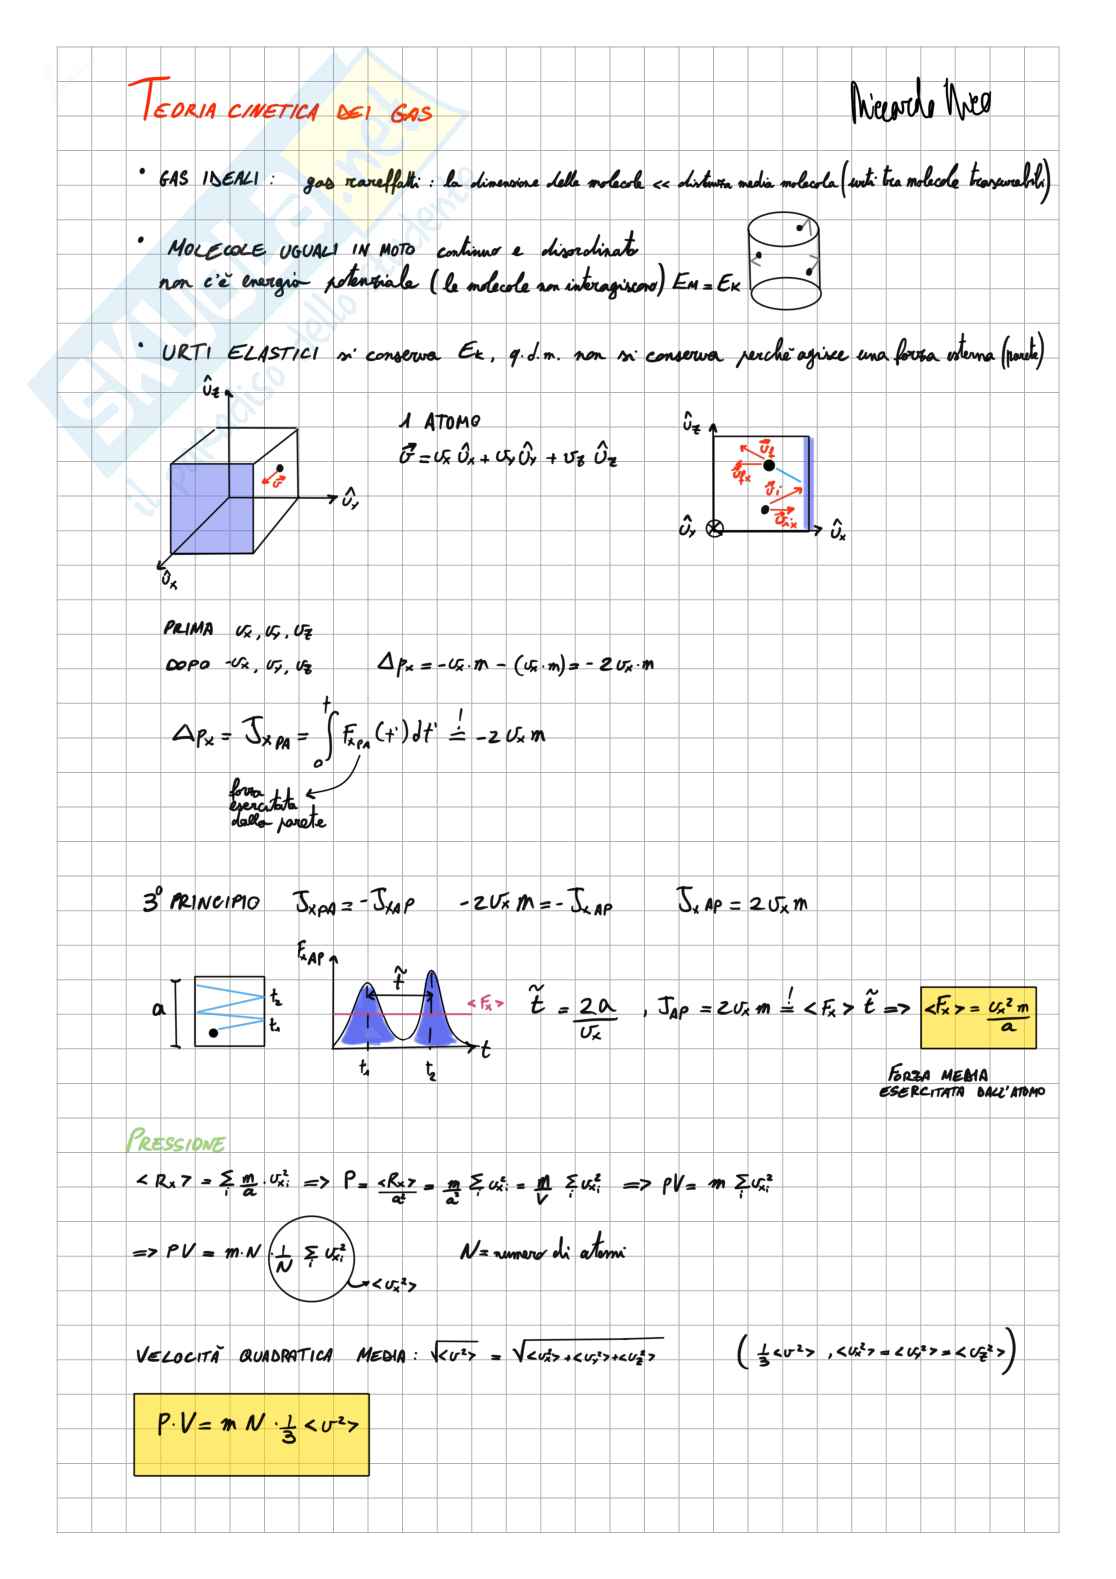 TEORIA CINETICA DEI GAS
Riccardo Nico
• GAS IDEALI : gas rareffatti : la dimensione delle molecole << distanza media molecola (urti tra molecole trascurabili)
• MOLECOLE UGUALI IN MOTO continuo e disordinato
non c'è energia potenziale (le molecole non interagiscono) EM = EK
• URTI ELASTICI si conserva EK, q.d.m. non si conserva perché agisce una forza esterna (parete)
ÛZ
1 ATOMO
v⃗ = vx Ûx + vy Ûy + vz Ûz
v⃗
Ûy
Ûx
Ûz
v⃗f
v⃗fx
v⃗i
v⃗ix
Ûy
Ûx
PRIMA vx, vy, vz
DOPO -vx, vy, vz Δpx = -vx·m - (vx·m) = - 2vx·m
Δpx = Jx PA = ∫₀ᵗ Fx PA (t') dt' =! -2 vx m
forza
esercitata
dalla parete
3° PRINCIPIO Jx PA = -Jx AP -2vx m = -Jx AP Jx AP = 2vx m
Fx AP
t̃
<Fx>
a
t2
t1
t
t1
t2
t̃ = 2a/vx , JAP = 2vx m =! <Fx> t̃ => <Fx> = vx² m/a
FORZA MEDIA
ESERCITATA DALL'ATOMO
PRESSIONE
<Rx> = Σi m/a · vxi² => P = <Rx>/a² = m/a³ Σi vxi² = m/V Σi vxi² => pV = m Σi vxi²
=> PV = m·N · 1/N Σi vxi² N = numero di atomi
<vx²>
VELOCITÀ QUADRATICA MEDIA : √<v²> = √<vx²>+<vy²>+<vz²> (1/3 <v²> , <vx²> = <vy²> = <vz²>)
P·V = m N · 1/3 <v²>
SKUOLA.net
il paradiso dello studente